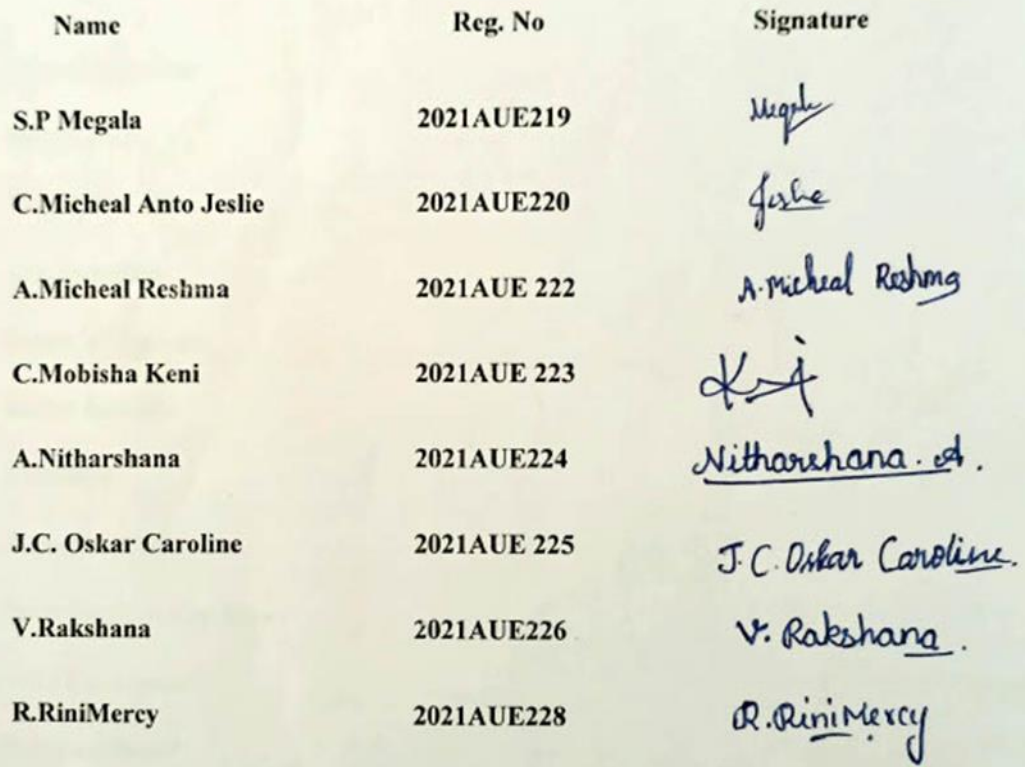 Name Reg. No Signature
S.P Megala 2021AUE219 Megala
C.Micheal Anto Jeslie 2021AUE220 Jeslie
A.Micheal Reshma 2021AUE 222 A.Micheal Reshma
C.Mobisha Keni 2021AUE 223
A.Nitharshana 2021AUE224 Nitharshana. A.
J.C. Oskar Caroline 2021AUE 225 J.C.Oskar Caroline.
V.Rakshana 2021AUE226 V. Rakshana.
R.RiniMercy 2021AUE228 R.RiniMercy